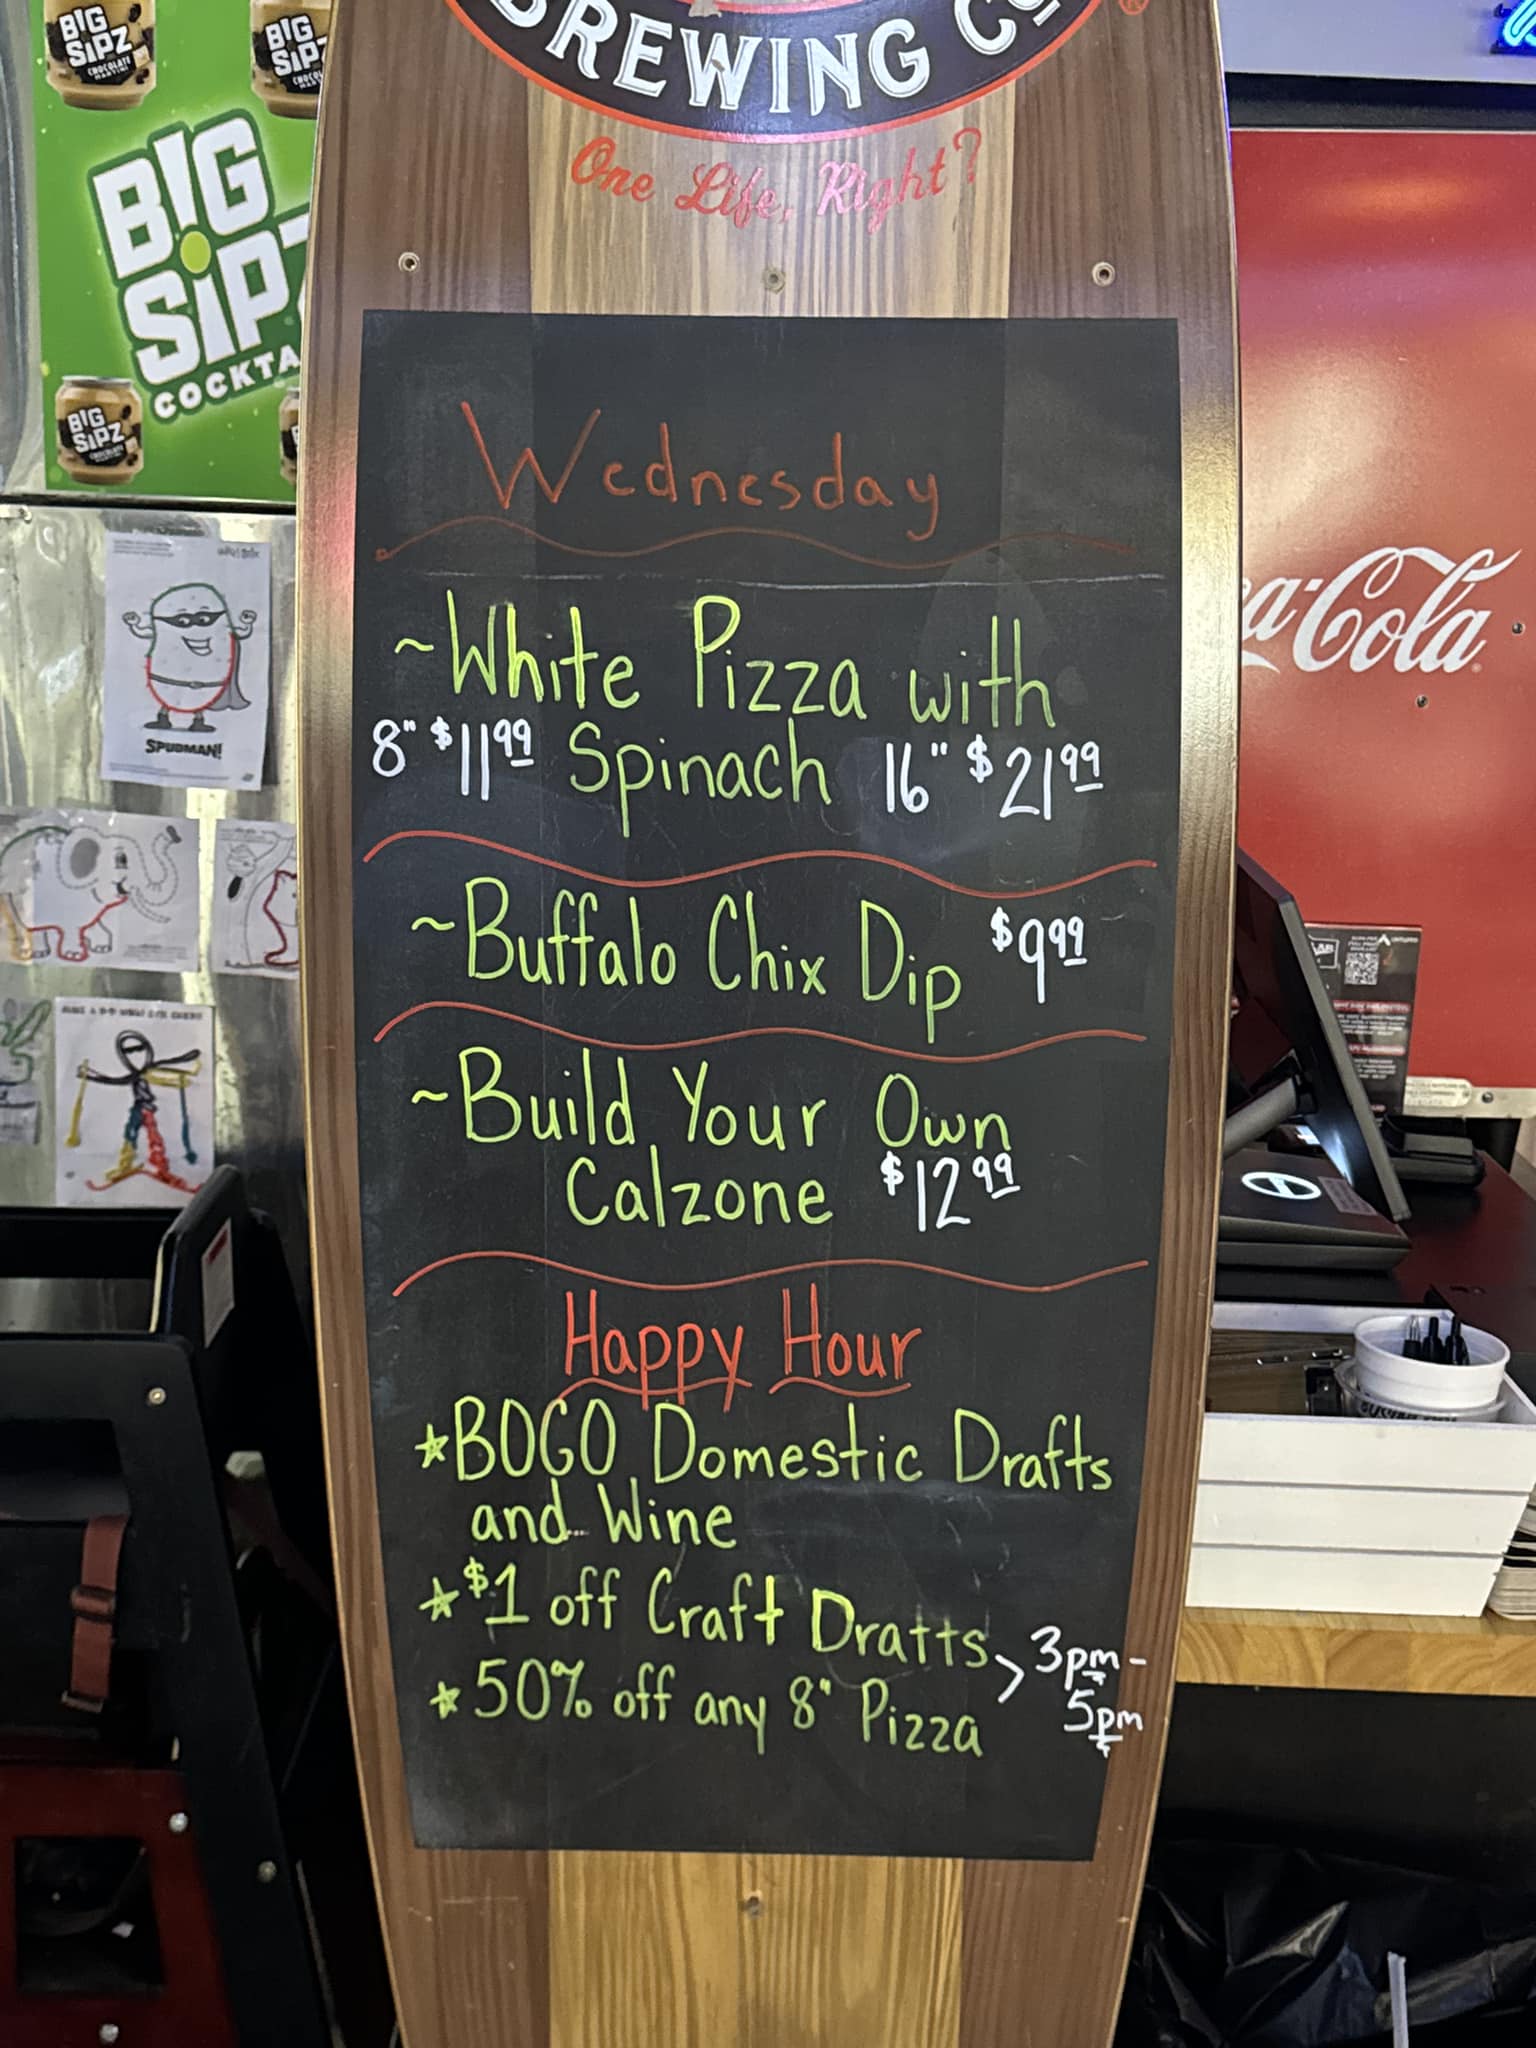 BREWING CO
One Life, Right?
BIG
SIPZ
CHOCOLATE
BIG
SIPZ
BIG
SIPZ
COCKTA
BIG
SIPZ
SPUDMAN!
Coca-Cola
Wednesday
~White Pizza with
8" $11.99 Spinach 16" $21.99
~Buffalo Chix Dip $9.99
~Build Your Own
Calzone $12.99
Happy Hour
*BOGO Domestic Drafts
and Wine
*$1 off Craft Drafts
*50% off any 8" Pizza
> 3pm-
5pm